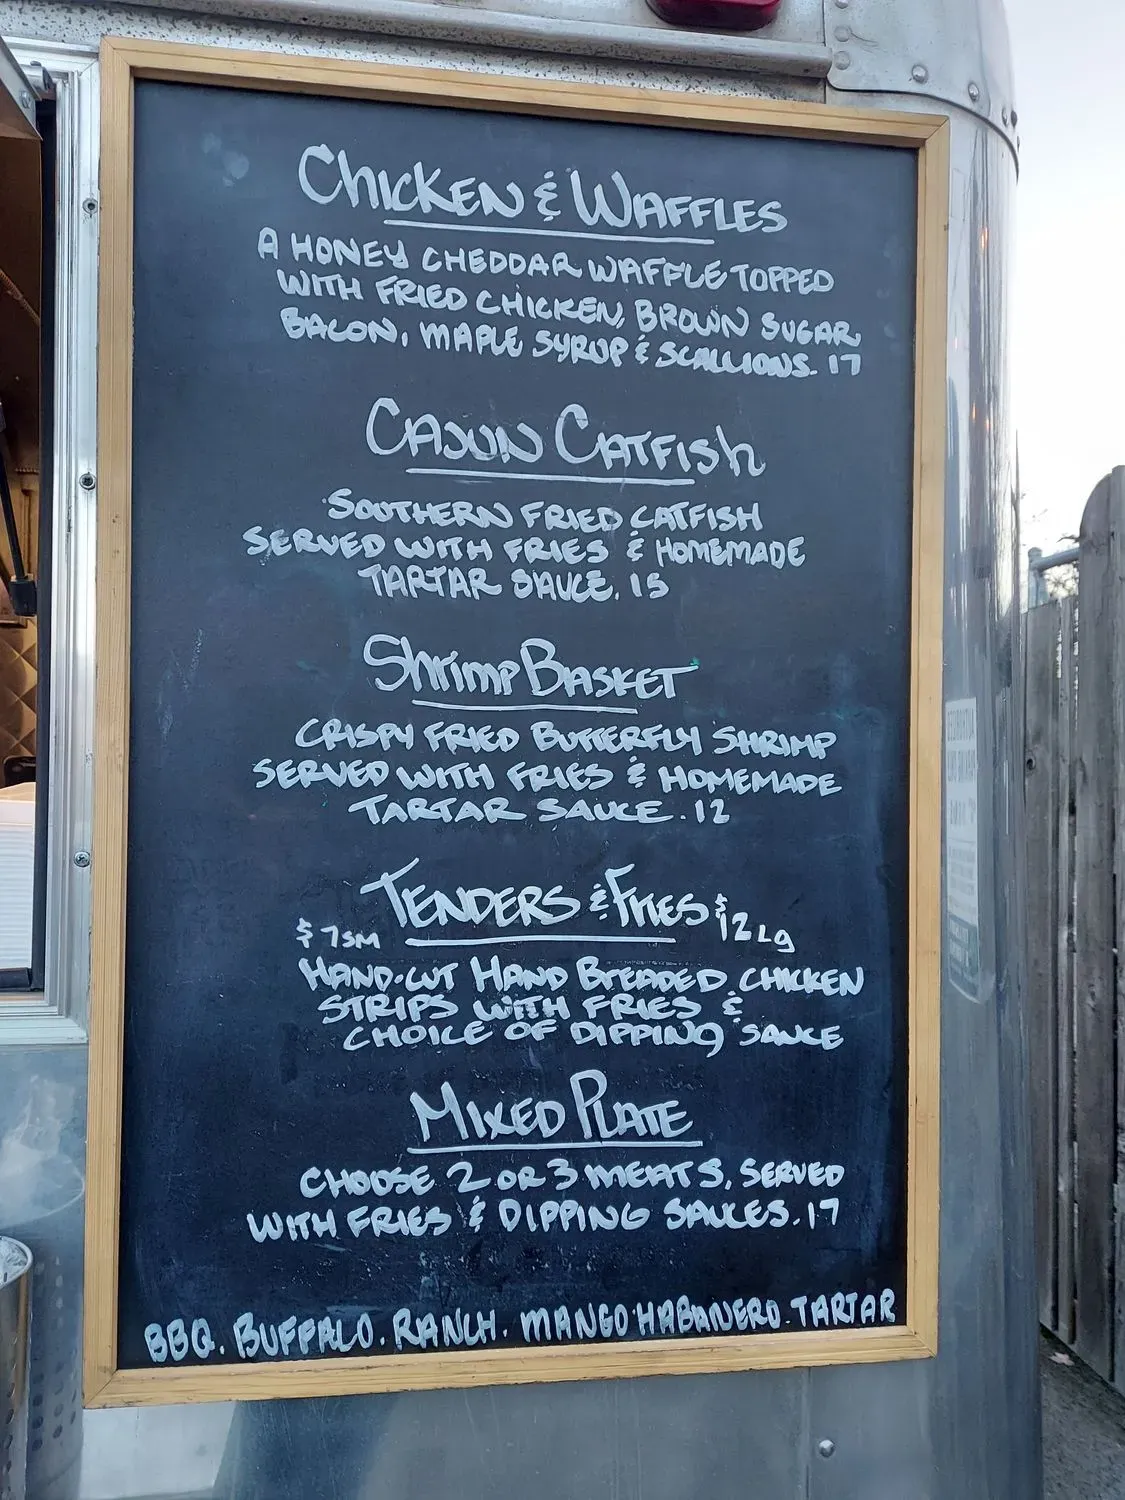 CHICKEN & WAFFLES
A HONEY CHEDDAR WAFFLE TOPPED
WITH FRIED CHICKEN, BROWN SUGAR
BACON, MAPLE SYRUP & SCALLIONS. 17
CAJUN CATFISH
SOUTHERN FRIED CATFISH
SERVED WITH FRIES & HOMEMADE
TARTAR SAUCE. 15
SHRIMP BASKET
CRISPY FRIED BUTTERFLY SHRIMP
SERVED WITH FRIES & HOMEMADE
TARTAR SAUCE. 12
TENDERS & FRIES
$7 SM $12 Lg
HAND-CUT HAND BREADED CHICKEN
STRIPS WITH FRIES &
CHOICE OF DIPPING SAUCE
MIXED PLATE
CHOOSE 2 OR 3 MEATS, SERVED
WITH FRIES & DIPPING SAUCES. 17
BBQ. BUFFALO. RANCH. MANGO HABANERO. TARTAR